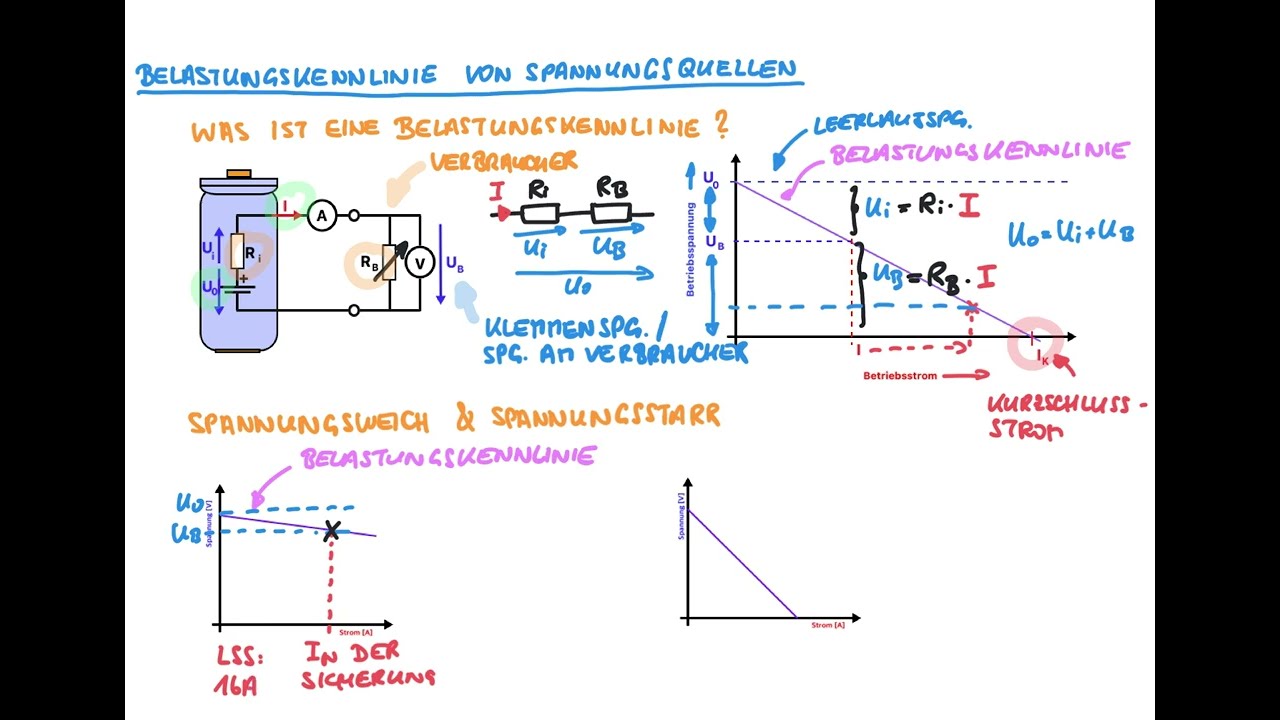 BELASTUNGSKENNLINIE VON SPANNUNGSQUELLEN
WAS IST EINE BELASTUNGSKENNLINIE?
VERBRAUCHER
I
A
Ui
Ri
U0
+
RB
V
UB
I
Ri
RB
Ui
UB
U0
KLEMMENSPG. /
SPG. AM VERBRAUCHER
LEERLAUFSPG.
BELASTUNGSKENNLINIE
U0
UB
Betriebsspannung
Ui = Ri · I
UB = RB · I
U0 = Ui + UB
I
IK
Betriebsstrom
KURZSCHLUSS-
STROM
SPANNUNGSWEICH & SPANNUNGSSTARR
BELASTUNGSKENNLINIE
U0
UB
Spannung [V]
Strom [A]
LSS:
16A
IN DER
SICHERUNG
Spannung [V]
Strom [A]